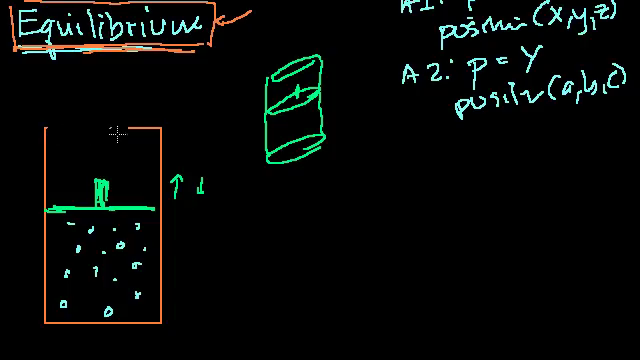 Equilibrium
A1: p
position (x,y,z)
A2: p = Y
position (a,b,c)